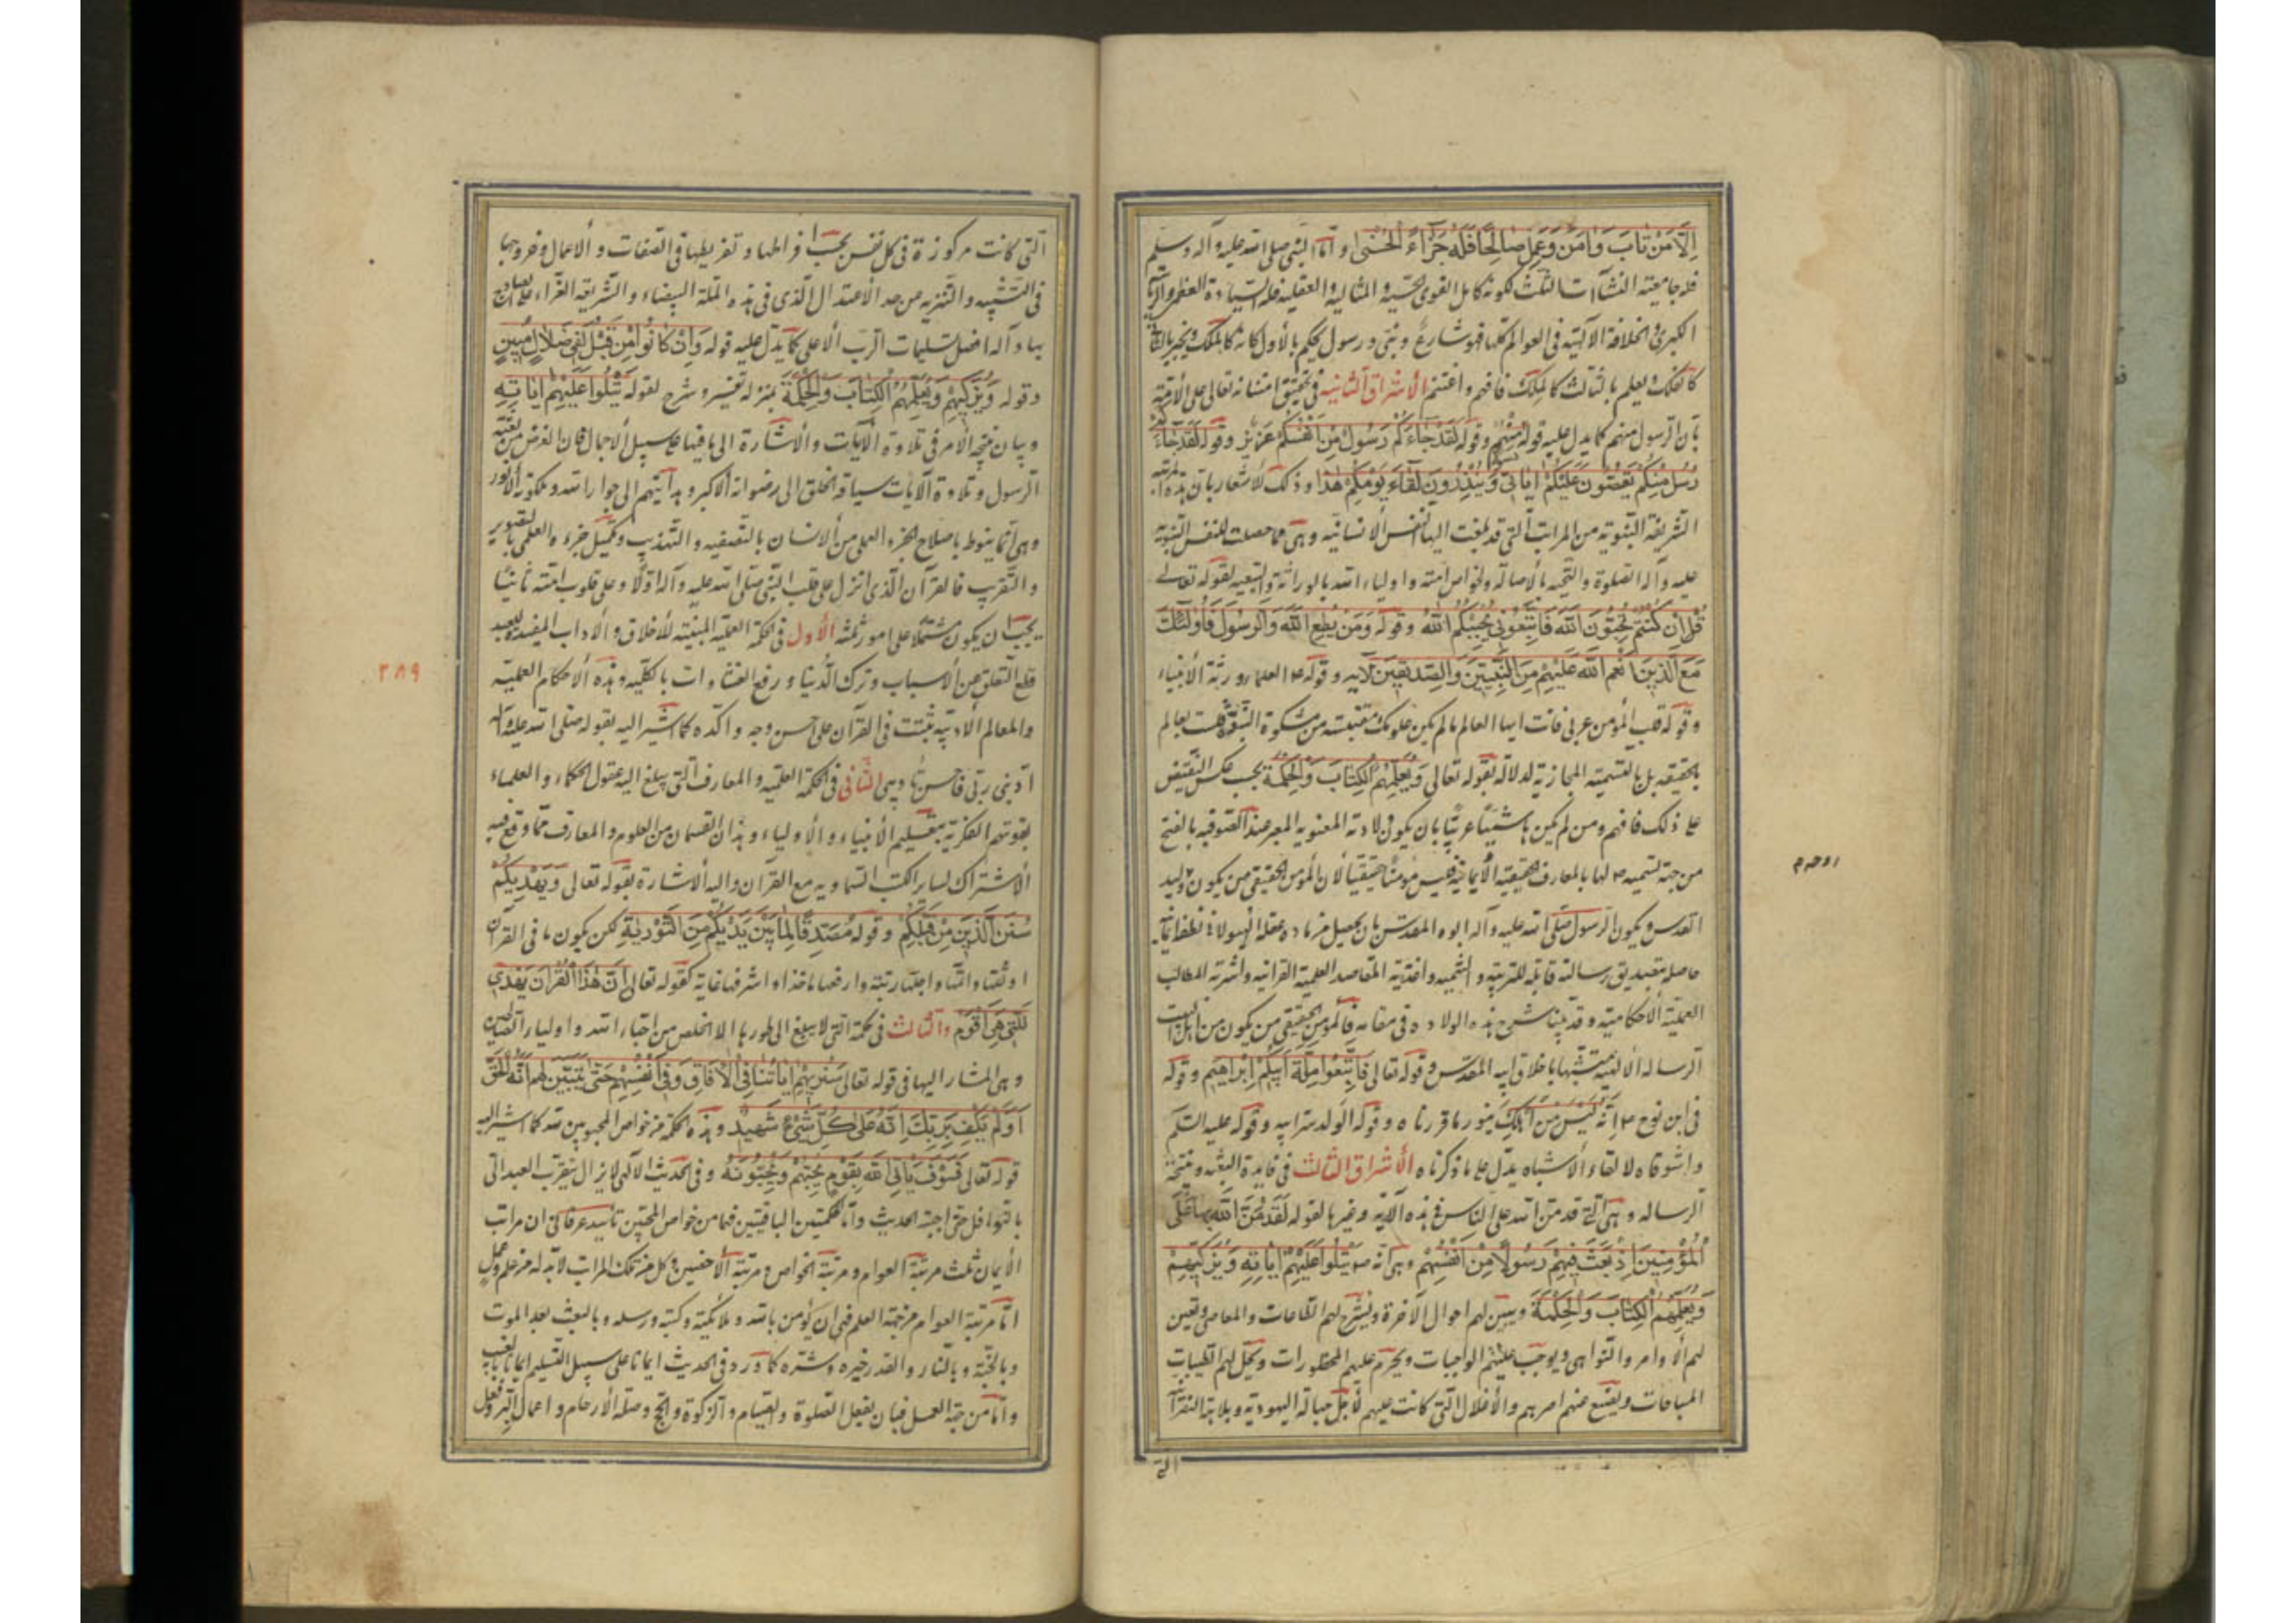 اِلّا مَنْ تابَ وَامَنَ وَعَمِلَ صالِحًا فَلَهُ جَزآءً الْحُسْنى و امّا النبى صلى اللّه عليه وآله وسلم
فلجامعيته النشآت الثلث لكونه كامل القوى الحسية والمثالية والعقلية فله السيادة العظمى والرياسة
الكبرى والخلافة الالهية فى العوالم كلها فهو شارع ونبى ورسول يحكم بالاول كانه كالملك ويخبر بالثانى
كالفلك ويعلم بالثالث كالملك فافهم واغتنم الاشراق الثانية فى تحقيق امتنانه تعالى على الامة
بان الرسول منهم كما يدل عليه قوله مِنْهُمْ وقوله لَقَدْ جاءَكُمْ رَسُولٌ مِنْ اَنْفُسِكُمْ عَزيزٌ وقوله لَقَدْ جاءَكُمْ
رُسُلٌ مِنْكُمْ يَقُصّونَ عَلَيْكُمْ اياتى وَيُنْذِرُونَ لِقاءَ يَوْمِكُمْ هذا وذلك لاشعار بان هذه المرتبة
الشريفة النبوية من المراتب التى قد بلغت اليها النفس الانسانية وهى مما حصلت للنفس النبوية
عليه وآله الصلوة والتحية بالاصالة ولخواص امته واولياء اللّه بالوراثة والتبعية لقوله تعالى
قُلْ اِنْ كُنْتُمْ تُحِبّونَ اللّهَ فَاتّبِعُونى يُحْبِبْكُمُ اللّهُ وقوله وَمَنْ يُطِعِ اللّهَ وَالرّسُولَ فَاُولئِكَ
مَعَ الّذينَ اَنْعَمَ اللّهُ عَلَيْهِمْ مِنَ النّبِيّينَ وَالصّدّيقينَ الآية وقوله ص العلماء ورثة الانبياء
وقوله قلب المؤمن عربى فانت ايها العالم ما لم يكن علومك مقتبسة من مشكوة النبوة فلست بعالم
بالحقيقة بل بالتسمية المجازية لدلالة لقوله تعالى وَيُعَلّمُهُمُ الْكِتابَ وَالْحِكْمَةَ بحسب عكس النقيض
على ذلك فافهم ومن لم يكن هاشميًا عربيًا بان يكون ولادته المعنوية المعبر عند الصوفية بالفتح
من جهة تسميه ص لها بالمعارف الحقيقية الايمانية فليس مؤمنًا حقيقيا لان المؤمن الحقيقى من يكون وليد
القدس ويكون الرسول صلى اللّه عليه وآله ابوه المقدس بان يحصل من مادة عقله الهيولانى نطفة ايمانية
حاصلة بتصديق رسالته قابلة للتربية والتنمية واغذية المقاصد العلمية القرآنية واشربة المطالب
العملية الاحكامية وقد بينا شرح هذه الولادة فى مقامه فالمؤمن الحقيقى من يكون من اهل بيت
الرسالة الالهية متشبها باخلاق ابيه المقدس وقوله تعالى فَاتّبِعُوا مِلّةَ اَبيكُمْ اِبْراهيمَ وقوله
فى ابن نوح ع اِنّهُ لَيْسَ مِنْ اَهْلِكَ ينور ما قررناه وقوله الولد سر ابيه وقوله عليه السلم
واشوقاه لا لقاء الاشباه يدل على ما ذكرناه الاشراق الثالث فى فايدة البعثة ونتيجة
الرسالة وهى التى قد من اللّه على الناس فى هذه الآية وغيرها لقوله لَقَدْ مَنّ اللّهُ عَلَى
الْمُؤْمِنينَ اِذْ بَعَثَ فيهِمْ رَسُولًا مِنْ اَنْفُسِهِمْ وهى انه ص يَتْلُوا عَلَيْهِمْ اياتِهِ وَيُزَكّيهِمْ
وَيُعَلّمُهُمُ الْكِتابَ وَالْحِكْمَةَ ويبين لهم احوال الآخرة ويشرح لهم الطاعات والمعاصى ويعين
لهم الاوامر والنواهى ويوجب عليهم الواجبات ويحرم عليهم المحظورات ويحل لهم الطيبات
المباحات ويضع عنهم اصرهم والاغلال التى كانت عليهم لاجل جبالة اليهودية وبلابة النصرانية
التى
التى كانت مركوزة فى كل نفس بحسب افراطها وتفريطها فى الصفات والاعمال وخروجها
فى التشبيه والتنزيه من حد الاعتدال الذى فى هذه الملة البيضاء والشريعة الغراء على الصادع
بها وآله افضل تسليمات الرب الاعلى كما يدل عليه قوله وَاِنْ كانُوا مِنْ قَبْلُ لَفى ضَلالٍ مُبينٍ
وقوله وَيُزَكّيهِمْ وَيُعَلّمُهُمُ الْكِتابَ وَالْحِكْمَةَ بمنزلة تفسير وشرح لقوله يَتْلُوا عَلَيْهِمْ اياتِهِ
وبيان نتيجة الامر فى تلاوة الآيات والاشارة الى ما فيها على سبيل الاجمال فان الغرض من بعثة
الرسول وتلاوة الآيات سياقة الخلق الى رضوانه الاكبر وهدايتهم الى جوار اللّه وملكوته الانور
وهى انما ينوط باصلاح الجزء العملى من الانسان بالتصفية والتهذيب وتكميل جزءه العلمى بالتصوير
والتقريب فالقرآن الذى انزل على قلب النبى صلى اللّه عليه وآله اولًا وعلى قلوب امته ثانيًا
يجب ان يكون مشتملًا على امور ثلثة الاول فى الحكمة العملية المبنية للاخلاق والآداب المفيدة للعبد
قطع التعلق عن الاسباب وترك الدنيا ورفع الغشاوات بالكلية وهذه الاحكام العملية
والمعالم الادبية ثبتت فى القرآن على احسن وجه وآكده كما اشير اليه بقوله صلى اللّه عليه وآله
ادبنى ربى فاحسن تأديبى الثانى فى الحكمة العلمية والمعارف التى يبلغ اليه عقول الحكماء والعلماء
بقوتهم الفكرية بتعليم الانبياء والاولياء وهذان القسمان من العلوم والمعارف مما وقع فيه
الاشتراك لساير الكتب السماوية مع القرآن واليه الاشارة بقوله تعالى وَيَهْدِيَكُمْ
سُنَنَ الّذينَ مِنْ قَبْلِكُمْ وقوله مُصَدّقًا لِما بَيْنَ يَدَيْكُمْ مِنَ التّوْريةِ لكن يكون ما فى القرآن
اوثقها واتمها واجلها رتبة وارفعها ماخذا واشرفها غاية كقوله تعالى اِنّ هذَا الْقُرْانَ يَهْدى
لِلّتى هِىَ اَقْوَمُ والثالث فى حكمة التى لا يبلغ الى طورها الا الخلص من احباء اللّه واولياء
وهى المشار اليها فى قوله تعالى سَنُريهِمْ اياتِنا فِى الْافاقِ وَفى اَنْفُسِهِمْ حَتّى يَتَبَيّنَ لَهُمْ اَنّهُ الْحَقّ
اَوَلَمْ يَكْفِ بِرَبّكَ اَنّهُ عَلى كُلّ شَىْءٍ شَهيدٌ وهذه الحكمة من خواص المحبوبين للّه كما اشير اليه
قوله تعالى فَسَوْفَ يَاْتِى اللّهُ بِقَوْمٍ يُحِبّهُمْ وَيُحِبّونَهُ وفى الحديث الالهى لا يزال يتقرب العبد الىّ
بالنوافل حتى احبه الحديث واما الحكمتين الباقيتين فهما من خواص المحبين تأييد عرفانى ان مراتب
الايمان ثلث مرتبة العوام ومرتبة الخواص ومرتبة الاخصين وكل من تلك المراتب لابد له من علم وعمل
اما مرتبة العوام من جهة العلم فهى ان يؤمن باللّه وملائكته وكتبه ورسله وبالبعث بعد الموت
وبالجنة وبالنار والقدر خيره وشره كما ورد فى الحديث ايمانا على سبيل التسليم ايمانا بالغيب
واما من جهة العمل فبان يفعل الصلوة والصيام والزكوة والحج وصلة الارحام واعمال البر وفعل
٢٨٩